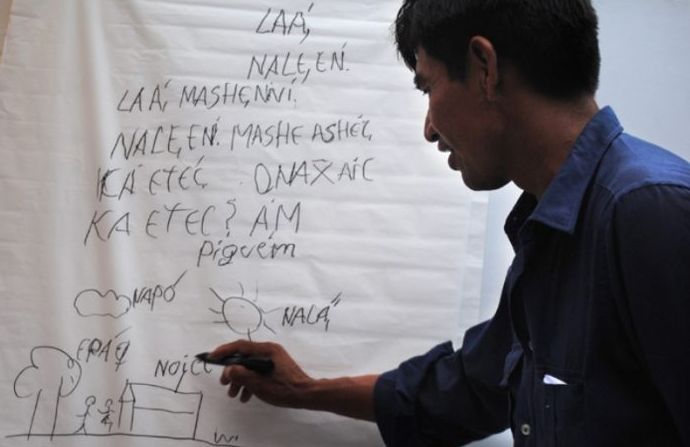 LAÁ,
NALE,EN.
LAÁ, MASHE,NNÍ.
NALE,EN. MASHE ASHE,
KÁ ETEC ONAX̄AIC
KA ETEC? ÁM
Piguem
NAPÓ
NALÁ,
EPÁQ